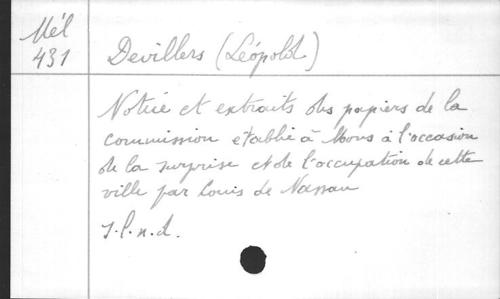 Mél
431
Devillers (Léopold)
Notice et extraits des papiers de la
commission établie à Mons à l'occasion
de la surprise et de l'occupation de cette
ville par Louis de Nassau
S.l.n.d.